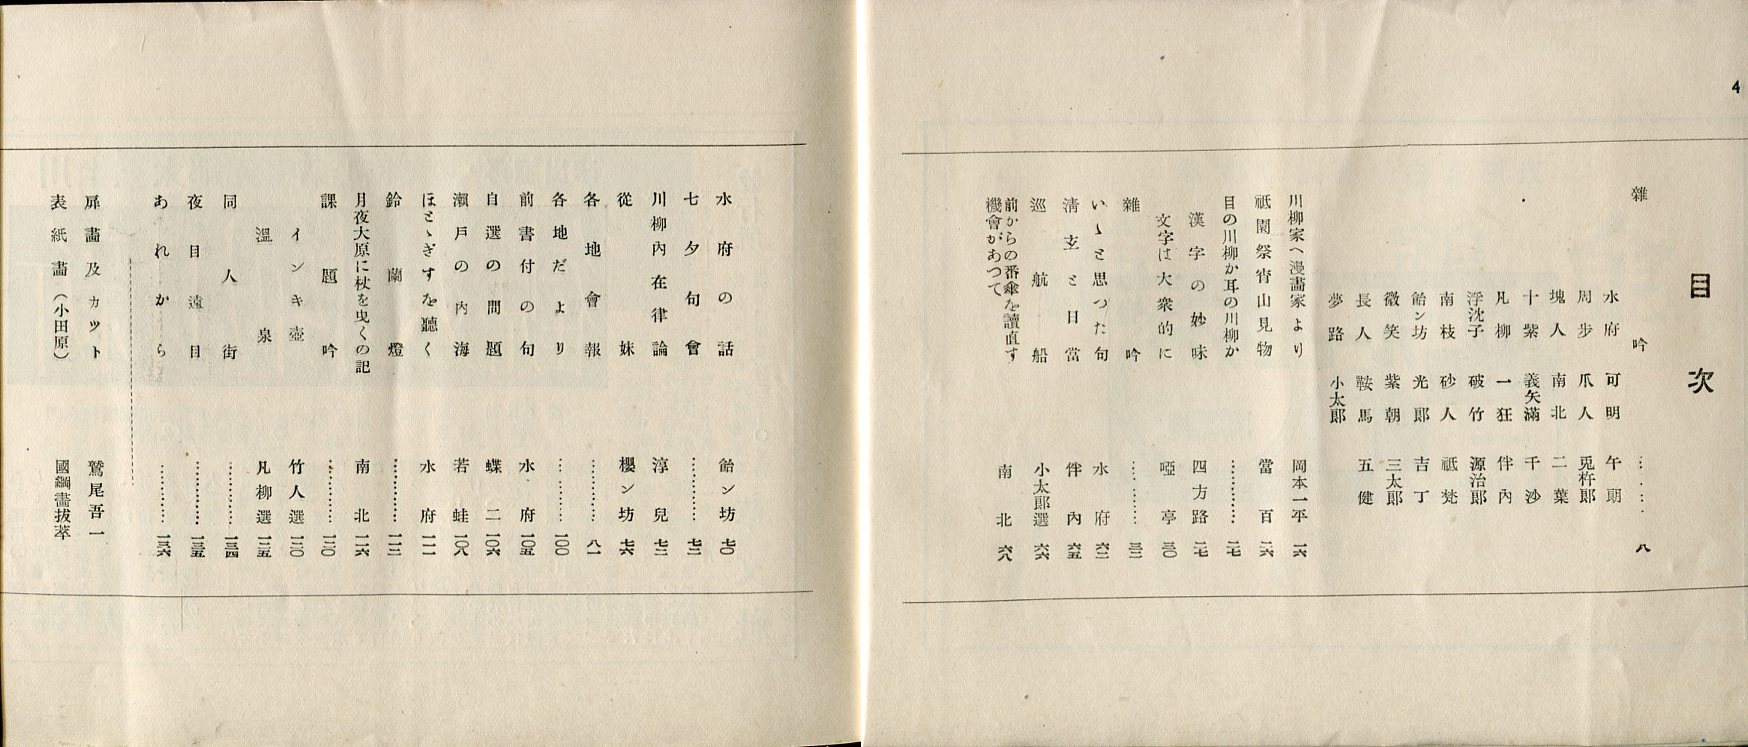 4
目次
雜吟………八
水府 可明 午朗
周步 爪人 兎杵郎
塊人 南北 二葉
十紫 義矢滿 千沙
凡柳 一狂 伴內
浮沈子 破竹 源治郎
南枝 砂人 祗梵
飴ン坊 光郎 吉丁
微笑 紫朝 三太郎
長人 鞍馬 五健
夢路 小太郎
川柳家へ漫畵家より 岡本一平 一六
祇園祭宵山見物 當百 二六
目の川柳か耳の川柳か………二七
漢字の妙味 四方路 二七
文字は大衆的に 啞亭 三〇
雜吟………三二
いゝと思つた句 水府 六三
淸玄と日當 伴內 六五
巡航船 小太郎選 六六
前からの番傘を讀直す
機會があつて 南北 六八
水府の話 飴ン坊 七〇
七夕句會………七二
川柳內在律論 淳兒 七三
從妹 櫻ン坊 七六
各地會報………八一
各地だより………一〇〇
前書付の句 水府 一〇五
自選の問題 蝶二 一〇六
瀨戶の內海 若蛙 一〇八
ほとゝぎすを聽く 水府 一一一
鈴蘭燈………一一三
月夜大原に杖を曳くの記 南北 一一六
課題吟………一二〇
インキ壺 竹人選 一二〇
溫泉 凡柳選 一二五
同人街………一三四
夜目遠目………一三五
あれから………一三六
扉畵及カツト 鷲尾吾一
表紙畵(小田原) 國綱畵拔萃